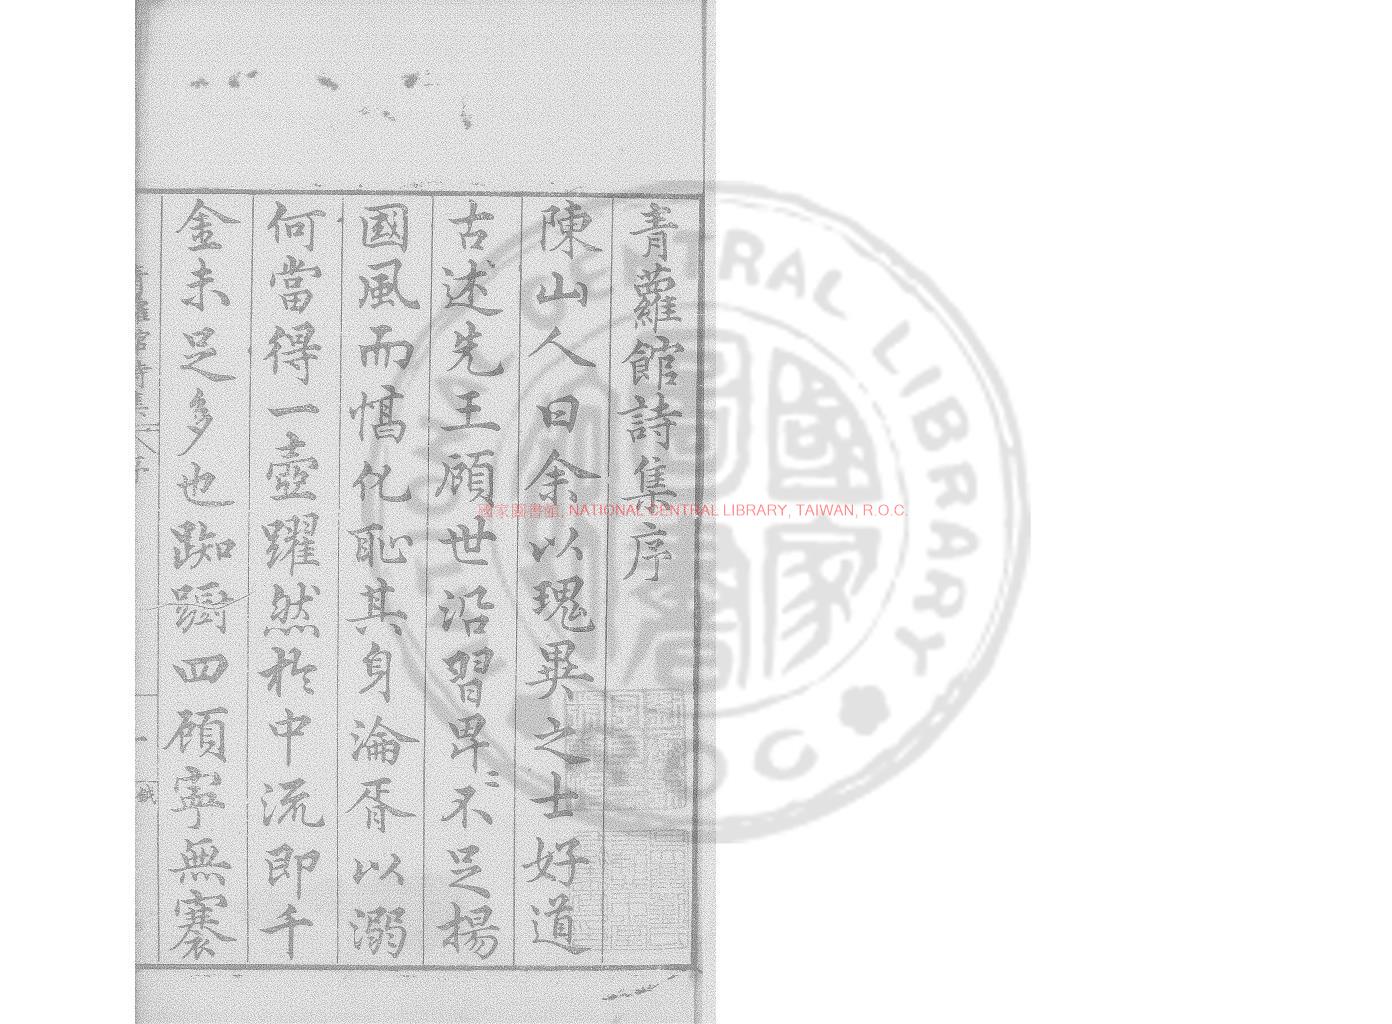 青蘿館詩集序
陳山人曰余以瑰異之士好道
古述先王頋世沿習卑〻不足揚
國風而慴化恥其身淪胥以溺
何當得一壺躍然於中流即千
金未足多也踟蹰四頋寧無褰
青蘿館詩集
國家圖書館, NATIONAL CENTRAL LIBRARY, TAIWAN, R.O.C
CENTRAL LIBRARY
R O C